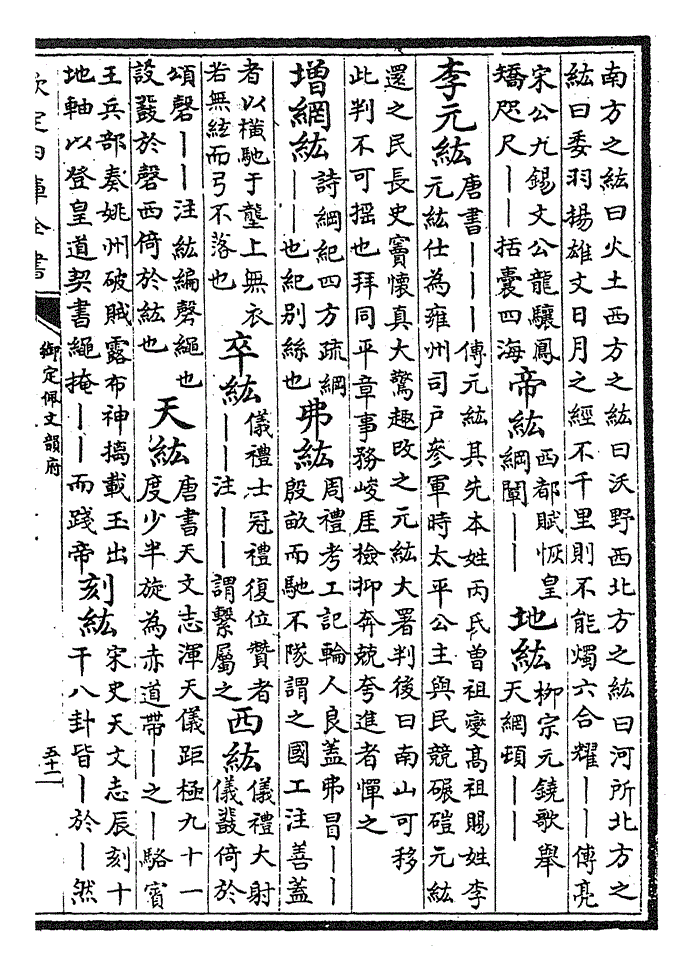 南方之紘曰火土西方之紘曰沃野西北方之紘曰河所北方之
紘曰委羽揚雄文日月之經不千里則不能燭六合耀丨丨傅亮
宋公九錫文公龍驤鳳
矯咫尺丨丨括囊四海
帝紘
西都賦恢皇
綱闡丨丨
地紘
柳宗元鐃歌舉
天綱頓丨丨
李元紘
唐書丨丨丨傳元紘其先本姓丙氏曾祖變髙祖賜姓李
元紘仕為雍州司戶參軍時太平公主與民競碾磑元紘
還之民長史竇懷真大驚趣改之元紘大署判後曰南山可移
此判不可揺也拜同平章事務峻厓檢抑奔競夸進者憚之
增網紘
詩綱紀四方疏綱
丨丨也紀别絲也
弗紘
周禮考工記輪人良蓋弗冒丨丨
殷畝而馳不隊謂之國工注善蓋
者以橫馳于壟上無衣
若無紘而弓不落也
卒紘
儀禮士冠禮復位贊者
丨丨注丨丨謂繫屬之
西紘
儀禮大射
儀鼗倚於
頌磬丨丨注紘編磬繩也
設鼗於磬西倚於紘也
天紘
唐書天文志渾天儀距極九十一
度少半旋為赤道帶丨之丨駱賓
王兵部奏姚州破賊露布神摛載玉出
地軸以登皇道契書繩掩丨丨而踐帝
刻紘
宋史天文志辰刻十
干八卦皆丨於丨然
欽定四庫全書
御定佩文韻府
五十二